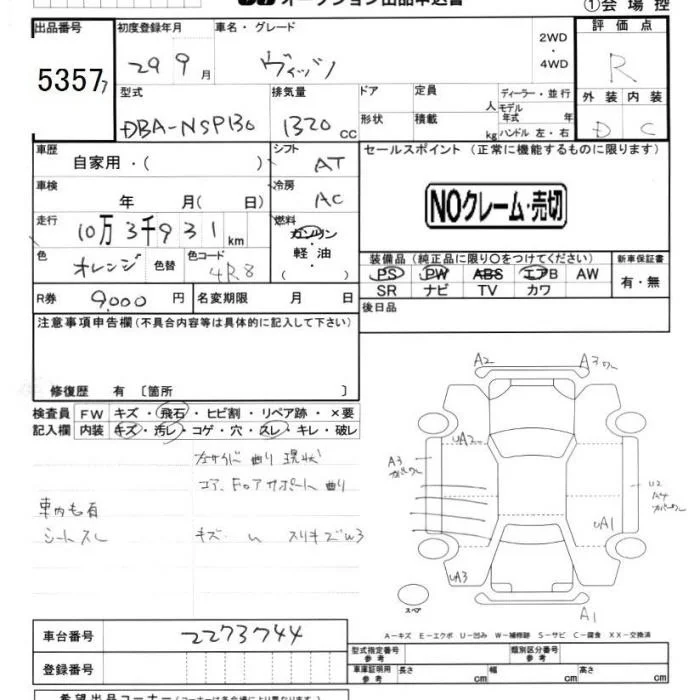 オークション出品申込書
①会場控
出品番号 初度登録年月 車名・グレード 2WD・4WD 評価点
5357 7
29 9月 ヴィッツ R
型式 排気量 ドア 定員 人 ディーラー・並行 外装 内装
DBA-NSP130 1320 cc 形状 積載 kg モデル年式 年 ハンドル 左・右 D C
車歴 シフト セールスポイント (正常に機能するものに限ります)
自家用・( ) AT
車検 冷房
年 月( 日) AC
NOクレーム・売切
走行 燃料
10万3千931km ガソリン
軽・油
( )
色 オレンジ 色替 色コード 4R8
装備品 (純正品に限り〇をつけてください) 新車保証書
PS PW ABS エアB AW 有・無
SR ナビ TV カワ
R券 9,000 円 名変期限 月 日
後日品
注意事項申告欄 (不具合内容等は具体的に記入して下さい)
修復歴 有 〔箇所 〕
検査員 FW キズ・飛石・ヒビ割・リペア跡・×要
記入欄 内装 キズ・汚レ・コゲ・穴・スレ・キレ・破レ
左サイド 曲り 現状
コア、Fロアサポート 曲り
車内も有
シートスレ キズ・ スリキズW3
A2
A3
UA2
A3
U2
UA1
UA3
A1
スペア
A-キズ E-エクボ U-凹み W-補修跡 S-サビ C-腐食 XX-交換済
車台番号 2273744
登録番号
型式指定番号 参考 類別区分番号 参考
車庫証明用 参考 長さ cm 幅 cm 高さ cm
希望出品コーナー (コーナーは各会場により異なります)